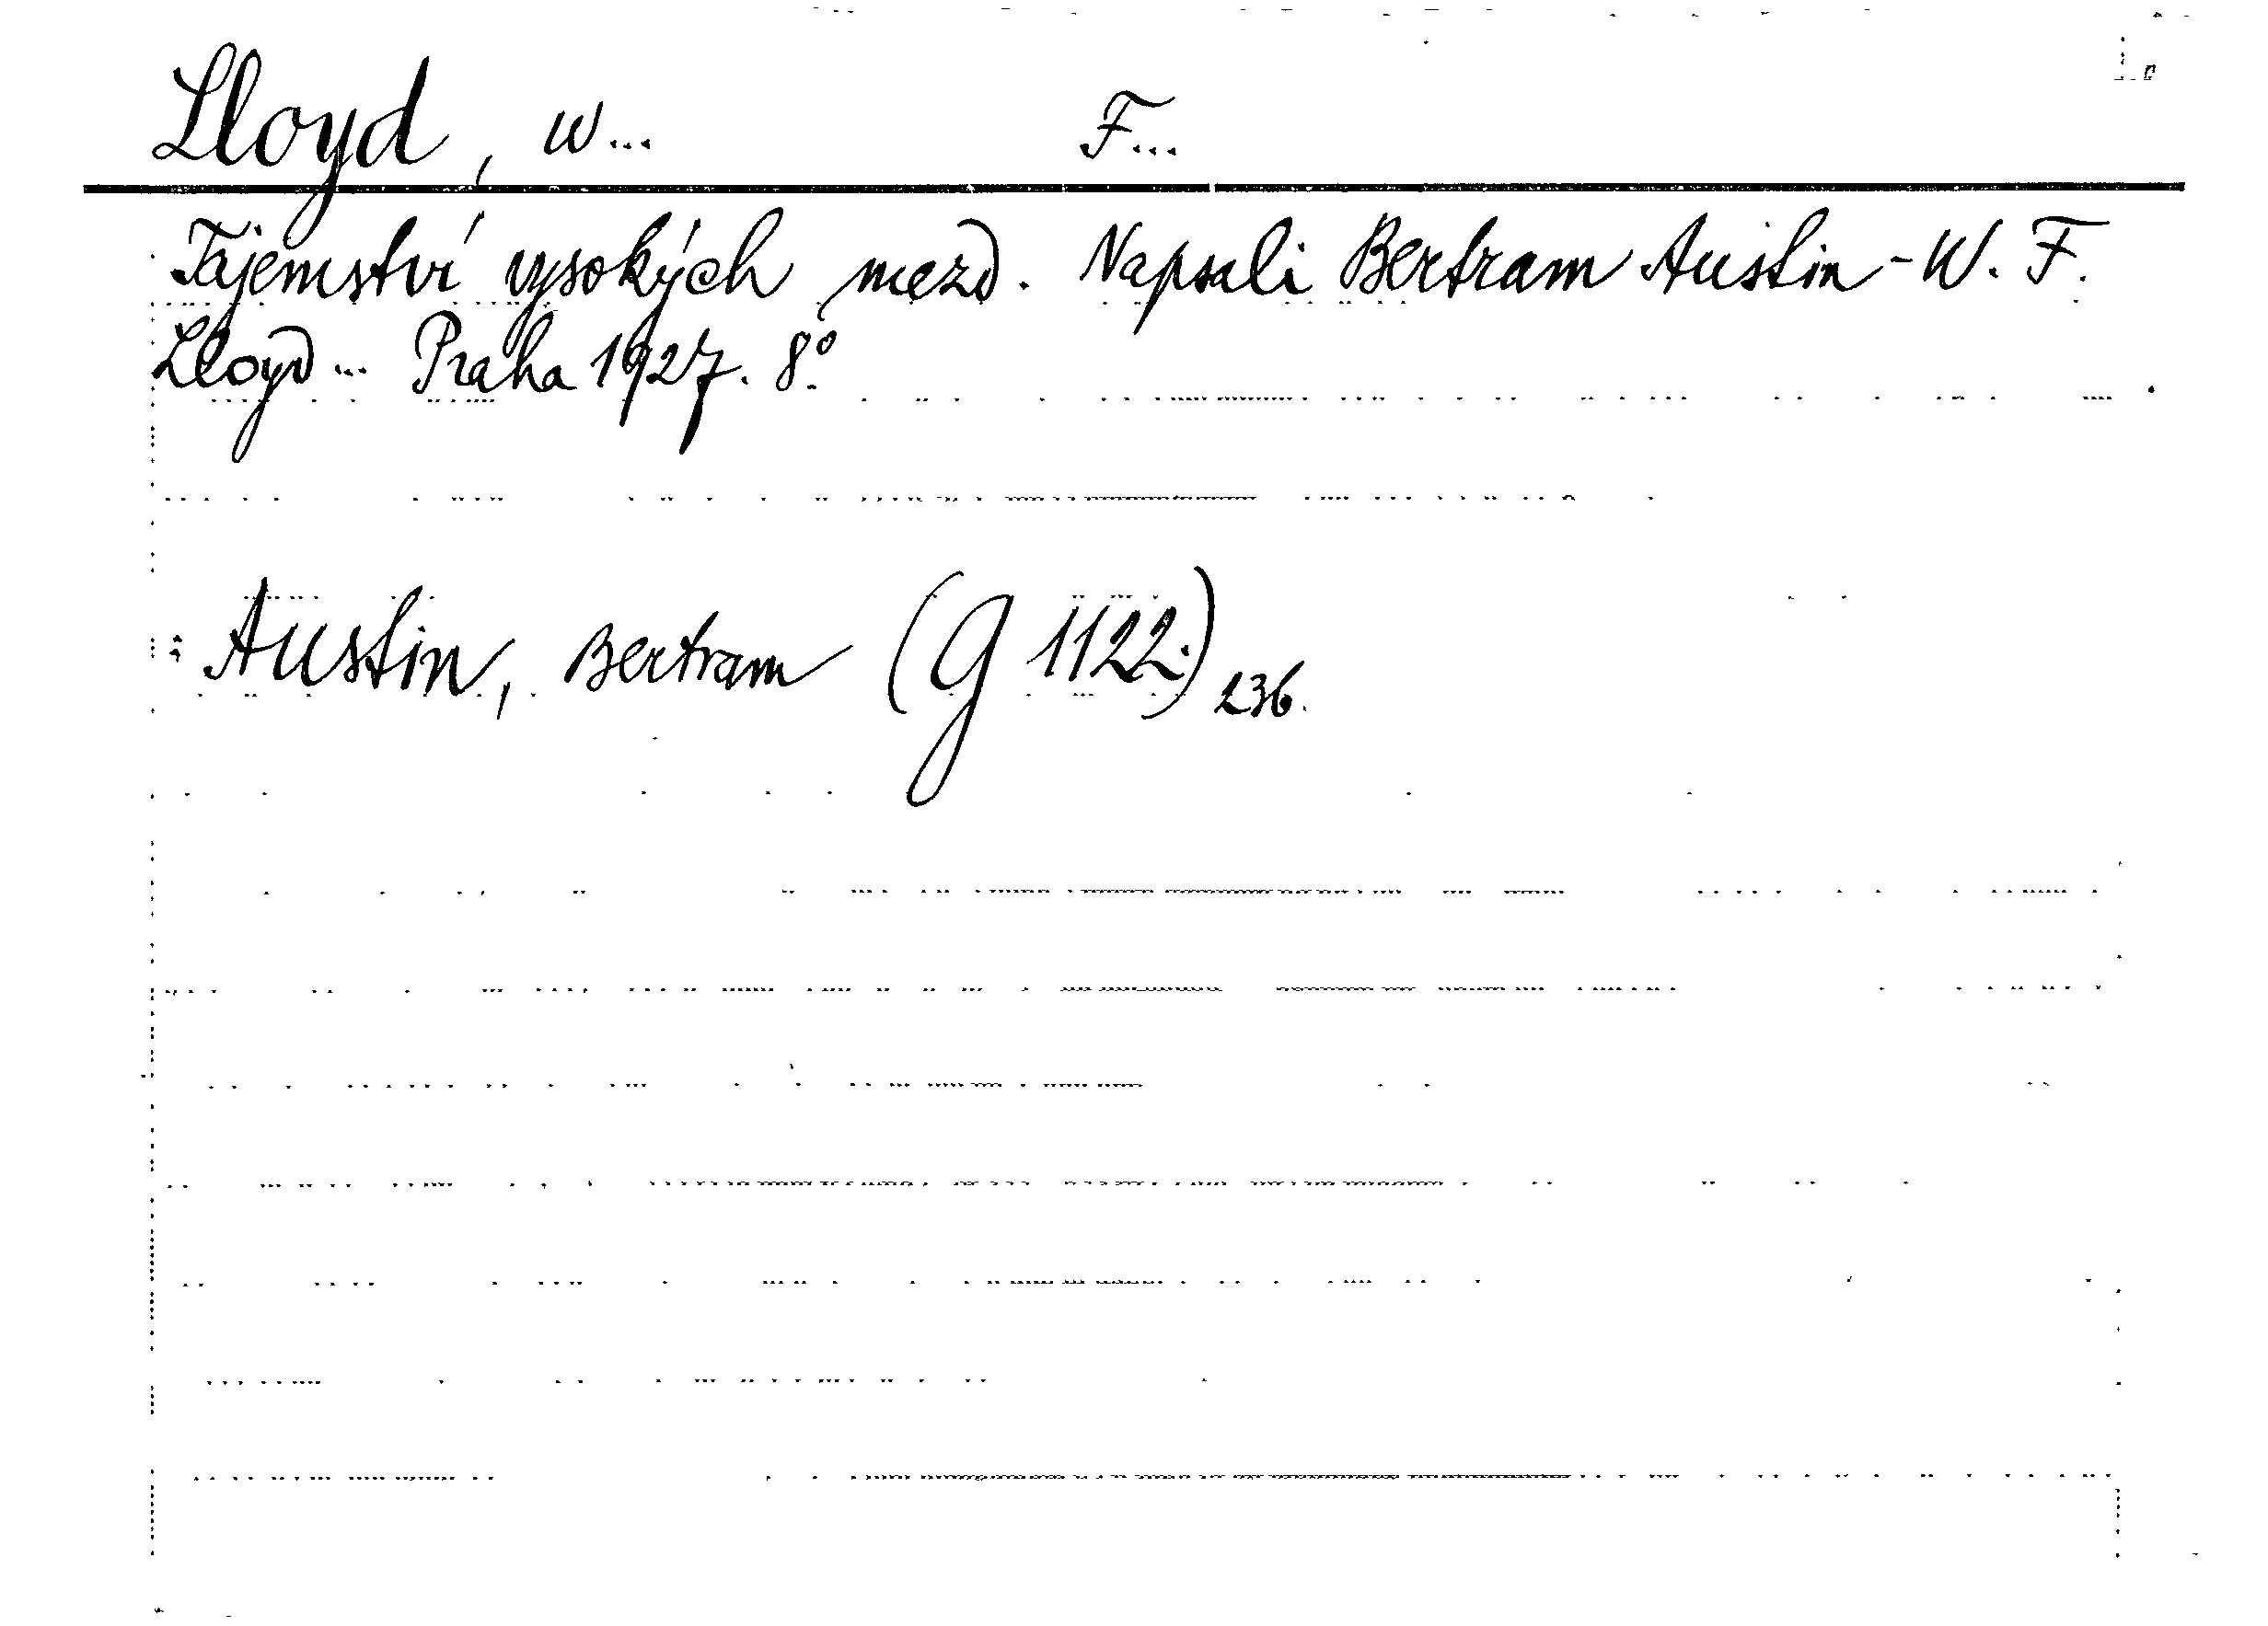 Lloyd, W... F...
Tajemství vysokých mezd. Napsali Bertram Austin - W. F.
Lloyd... Praha 1927. 8°.
: Austin, Bertram (G 1122.) 236.